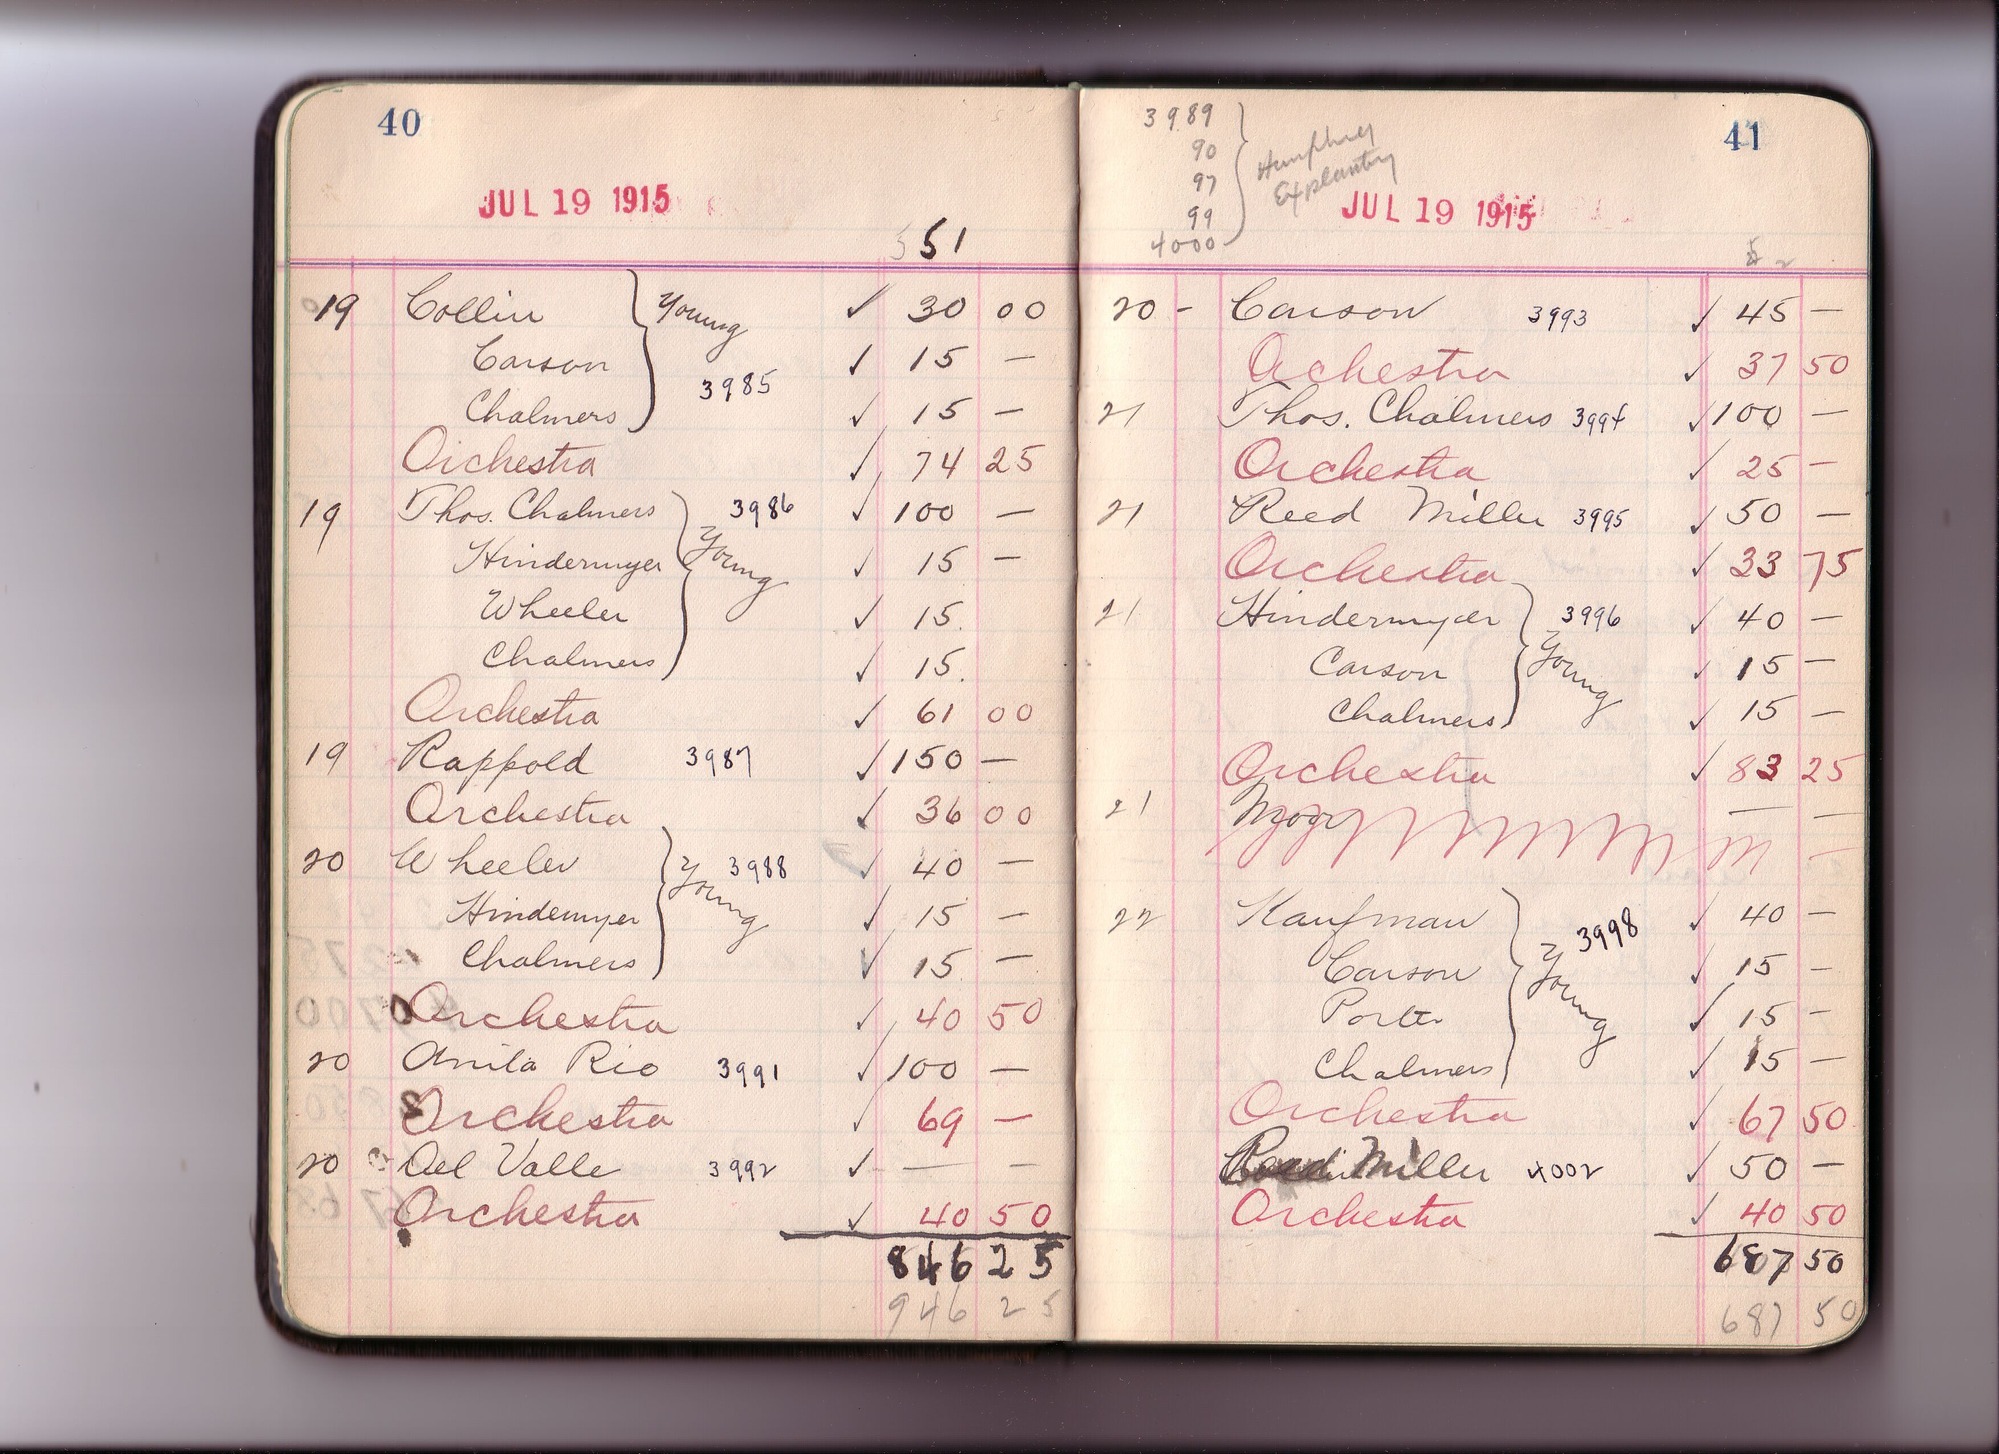 40
JUL 19 1915
551
19 Collin Young ✓ 30 00
Carson ✓ 15 —
3985
Chalmers ✓ 15 —
Orchestra ✓ 74 25
19 Thos. Chalmers 3986 ✓ 100 —
Hindermyer Young ✓ 15 —
Wheeler ✓ 15.
Chalmers ✓ 15.
Orchestra ✓ 61 00
19 Rappold 3987 ✓ 150 —
Orchestra ✓ 36 00
20 Wheeler Young 3988 ✓ 40 —
Hindemyer ✓ 15 —
Chalmers ✓ 15. —
Orchestra ✓ 40 50
20 Anita Rio 3991 ✓ 100 —
Orchestra ✓ 69 —
20 Del Valle 3992 ✓ — —
Orchestra ✓ 40 50
846 25
946 25
3989
90
97
99
4000
Humphrey
41
JUL 19 1915
20 - Carson 3993 ✓ 45 —
Orchestra ✓ 37 50
21 Thos. Chalmers 3994 ✓ 100 —
Orchestra ✓ 25 —
21 Reed Miller 3995 ✓ 50 —
Orchestra ✓ 33 75
21 Hindermyer 3996 ✓ 40 —
Carson Young ✓ 15 —
Chalmers ✓ 15 —
Orchestra ✓ 83 25
21 — —
22 Kaufman 3998 ✓ 40 —
Carson Young ✓ 15 —
Porter ✓ 15 —
Chalmers ✓ 15 —
Orchestra ✓ 67 50
Reed Miller 4002 ✓ 50 —
Orchestra ✓ 40 50
687 50
687 50